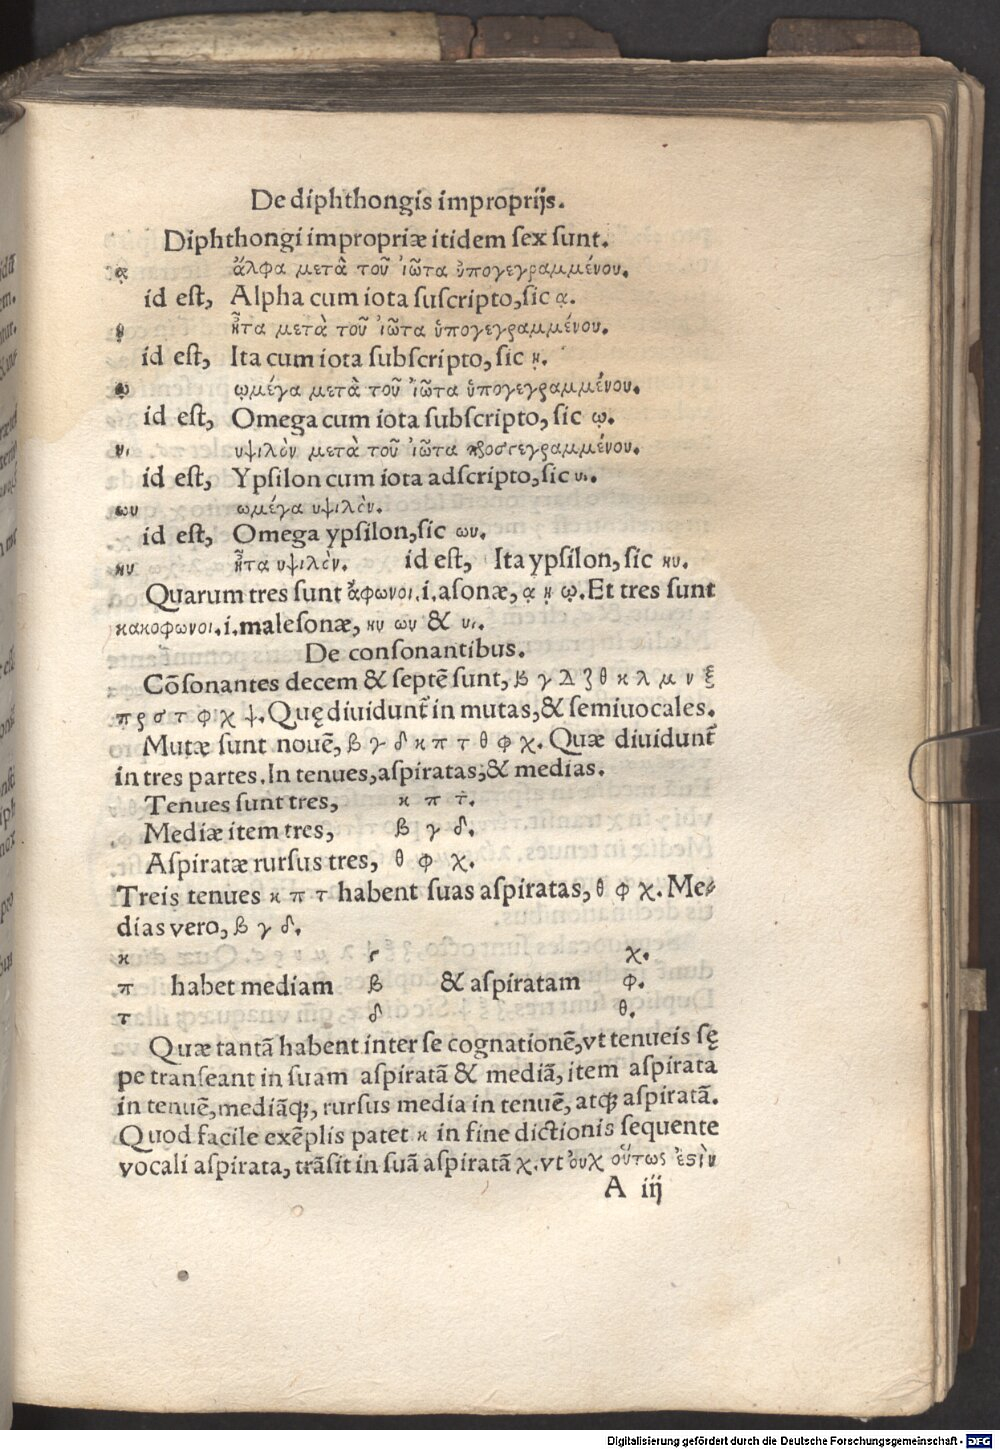 De diphthongis improprijs.
Diphthongi impropriæ itidem sex sunt.
ᾳ ἄλφα μετὰ τοῦ ἰῶτα ὑπογεγραμμένου.
id est, Alpha cum iota suscripto, sic ᾳ.
ῃ ἦτα μετὰ τοῦ ἰῶτα ὑπογεγραμμένου.
id est, Ita cum iota subscripto, sic ῃ.
ῳ ῳμέγα μετὰ τοῦ ἰῶτα ὑπογεγραμμένου.
id est, Omega cum iota subscripto, sic ῳ.
υι υψιλὸν μετὰ τοῦ ἰῶτα προσγεγραμμένου.
id est, Ypsilon cum iota adscripto, sic υι.
ωυ ωμέγα υψιλὸν.
id est, Omega ypsilon, sic ωυ.
ηυ ἦτα υψιλὸν. id est, Ita ypsilon, sic ηυ.
Quarum tres sunt ἄφωνοι .i. asonæ, ᾳ ῃ ῳ. Et tres sunt
κακοφωνοι .i. malesonæ, ηυ ωυ & υι.
De consonantibus.
Cõsonantes decem & septẽ sunt, β γ Δ ζ θ κ λ μ ν ξ
π ρ σ τ φ χ ψ. Quę diuidunt᷑ in mutas, & semiuocales.
Mutæ sunt nouẽ, β γ δ κ π τ θ φ χ. Quæ diuidunt᷑
in tres partes. In tenues, aspiratas, & medias.
Tenues sunt tres, κ π τ.
Mediæ item tres, β γ δ.
Aspiratæ rursus tres, θ φ χ.
Treis tenues κ π τ habent suas aspiratas, θ φ χ. Me⸗
dias vero, β γ δ.
κ γ χ.
π habet mediam β & aspiratam φ.
τ δ θ.
Quæ tantã habent inter se cognationẽ, vt tenueis sę
pe transeant in suam aspiratã & mediã, item aspirata
in tenuẽ, mediãq;, rursus media in tenuẽ, atq; aspiratã.
Quod facile exẽplis patet κ in fine dictionis sequente
vocali aspirata, trãsit in suã aspiratã χ. vt ὀυχ οὕτως ἐστὶν
A iij
Digitalisierung gefördert durch die Deutsche Forschungsgemeinschaft - DFG